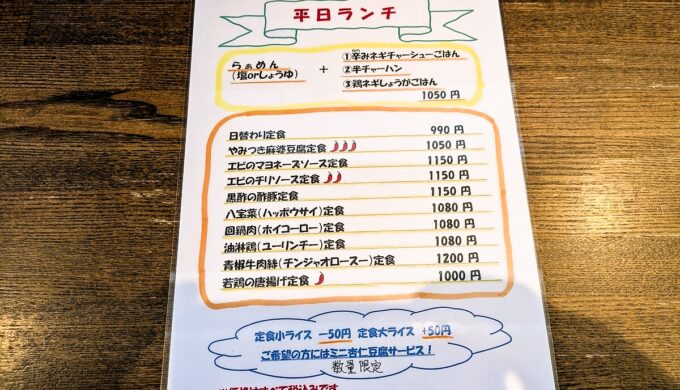 平日ランチ
らぁめん
(塩orしょうゆ)
+
①辛みネギチャーシューごはん
②半チャーハン
③鶏ネギしょうがごはん
1050円
日替わり定食 990円
やみつき麻婆豆腐定食 1050円
エビのマヨネーズソース定食 1150円
エビのチリソース定食 1150円
黒酢の酢豚定食 1150円
八宝菜(ハッポウサイ)定食 1080円
回鍋肉(ホイコーロー)定食 1080円
油淋鶏(ユーリンチー)定食 1080円
青椒牛肉絲(チンジャオロースー)定食 1200円
若鶏の唐揚げ定食 1000円
定食小ライス −50円 定食大ライス +50円
ご希望の方にはミニ杏仁豆腐サービス!
数量限定
※価格はすべて税込みです